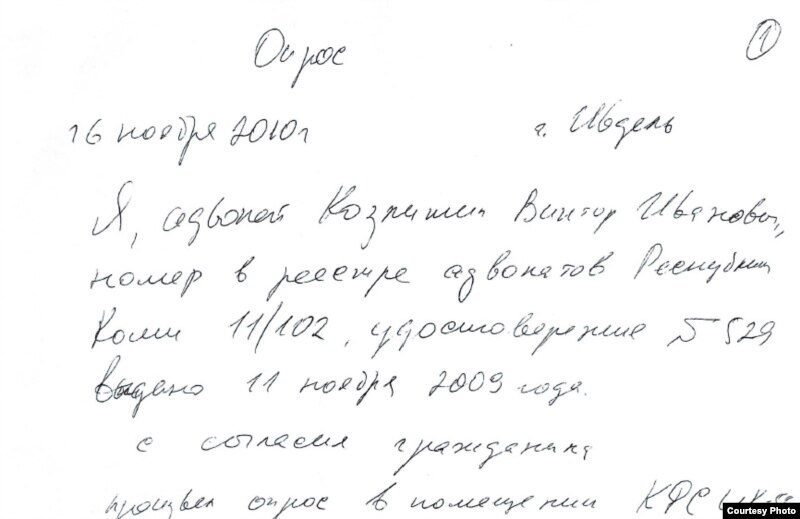 Опрос
1
16 ноября 2010г
г. Ивдель
Я, адвокат Козлитин Виктор Иванович,
номер в реестре адвокатов Республики
Коми 11/102, удостоверение № 529
выдано 11 ноября 2009 года.
с согласия гражданина
произвел опрос в помещении
Courtesy Photo